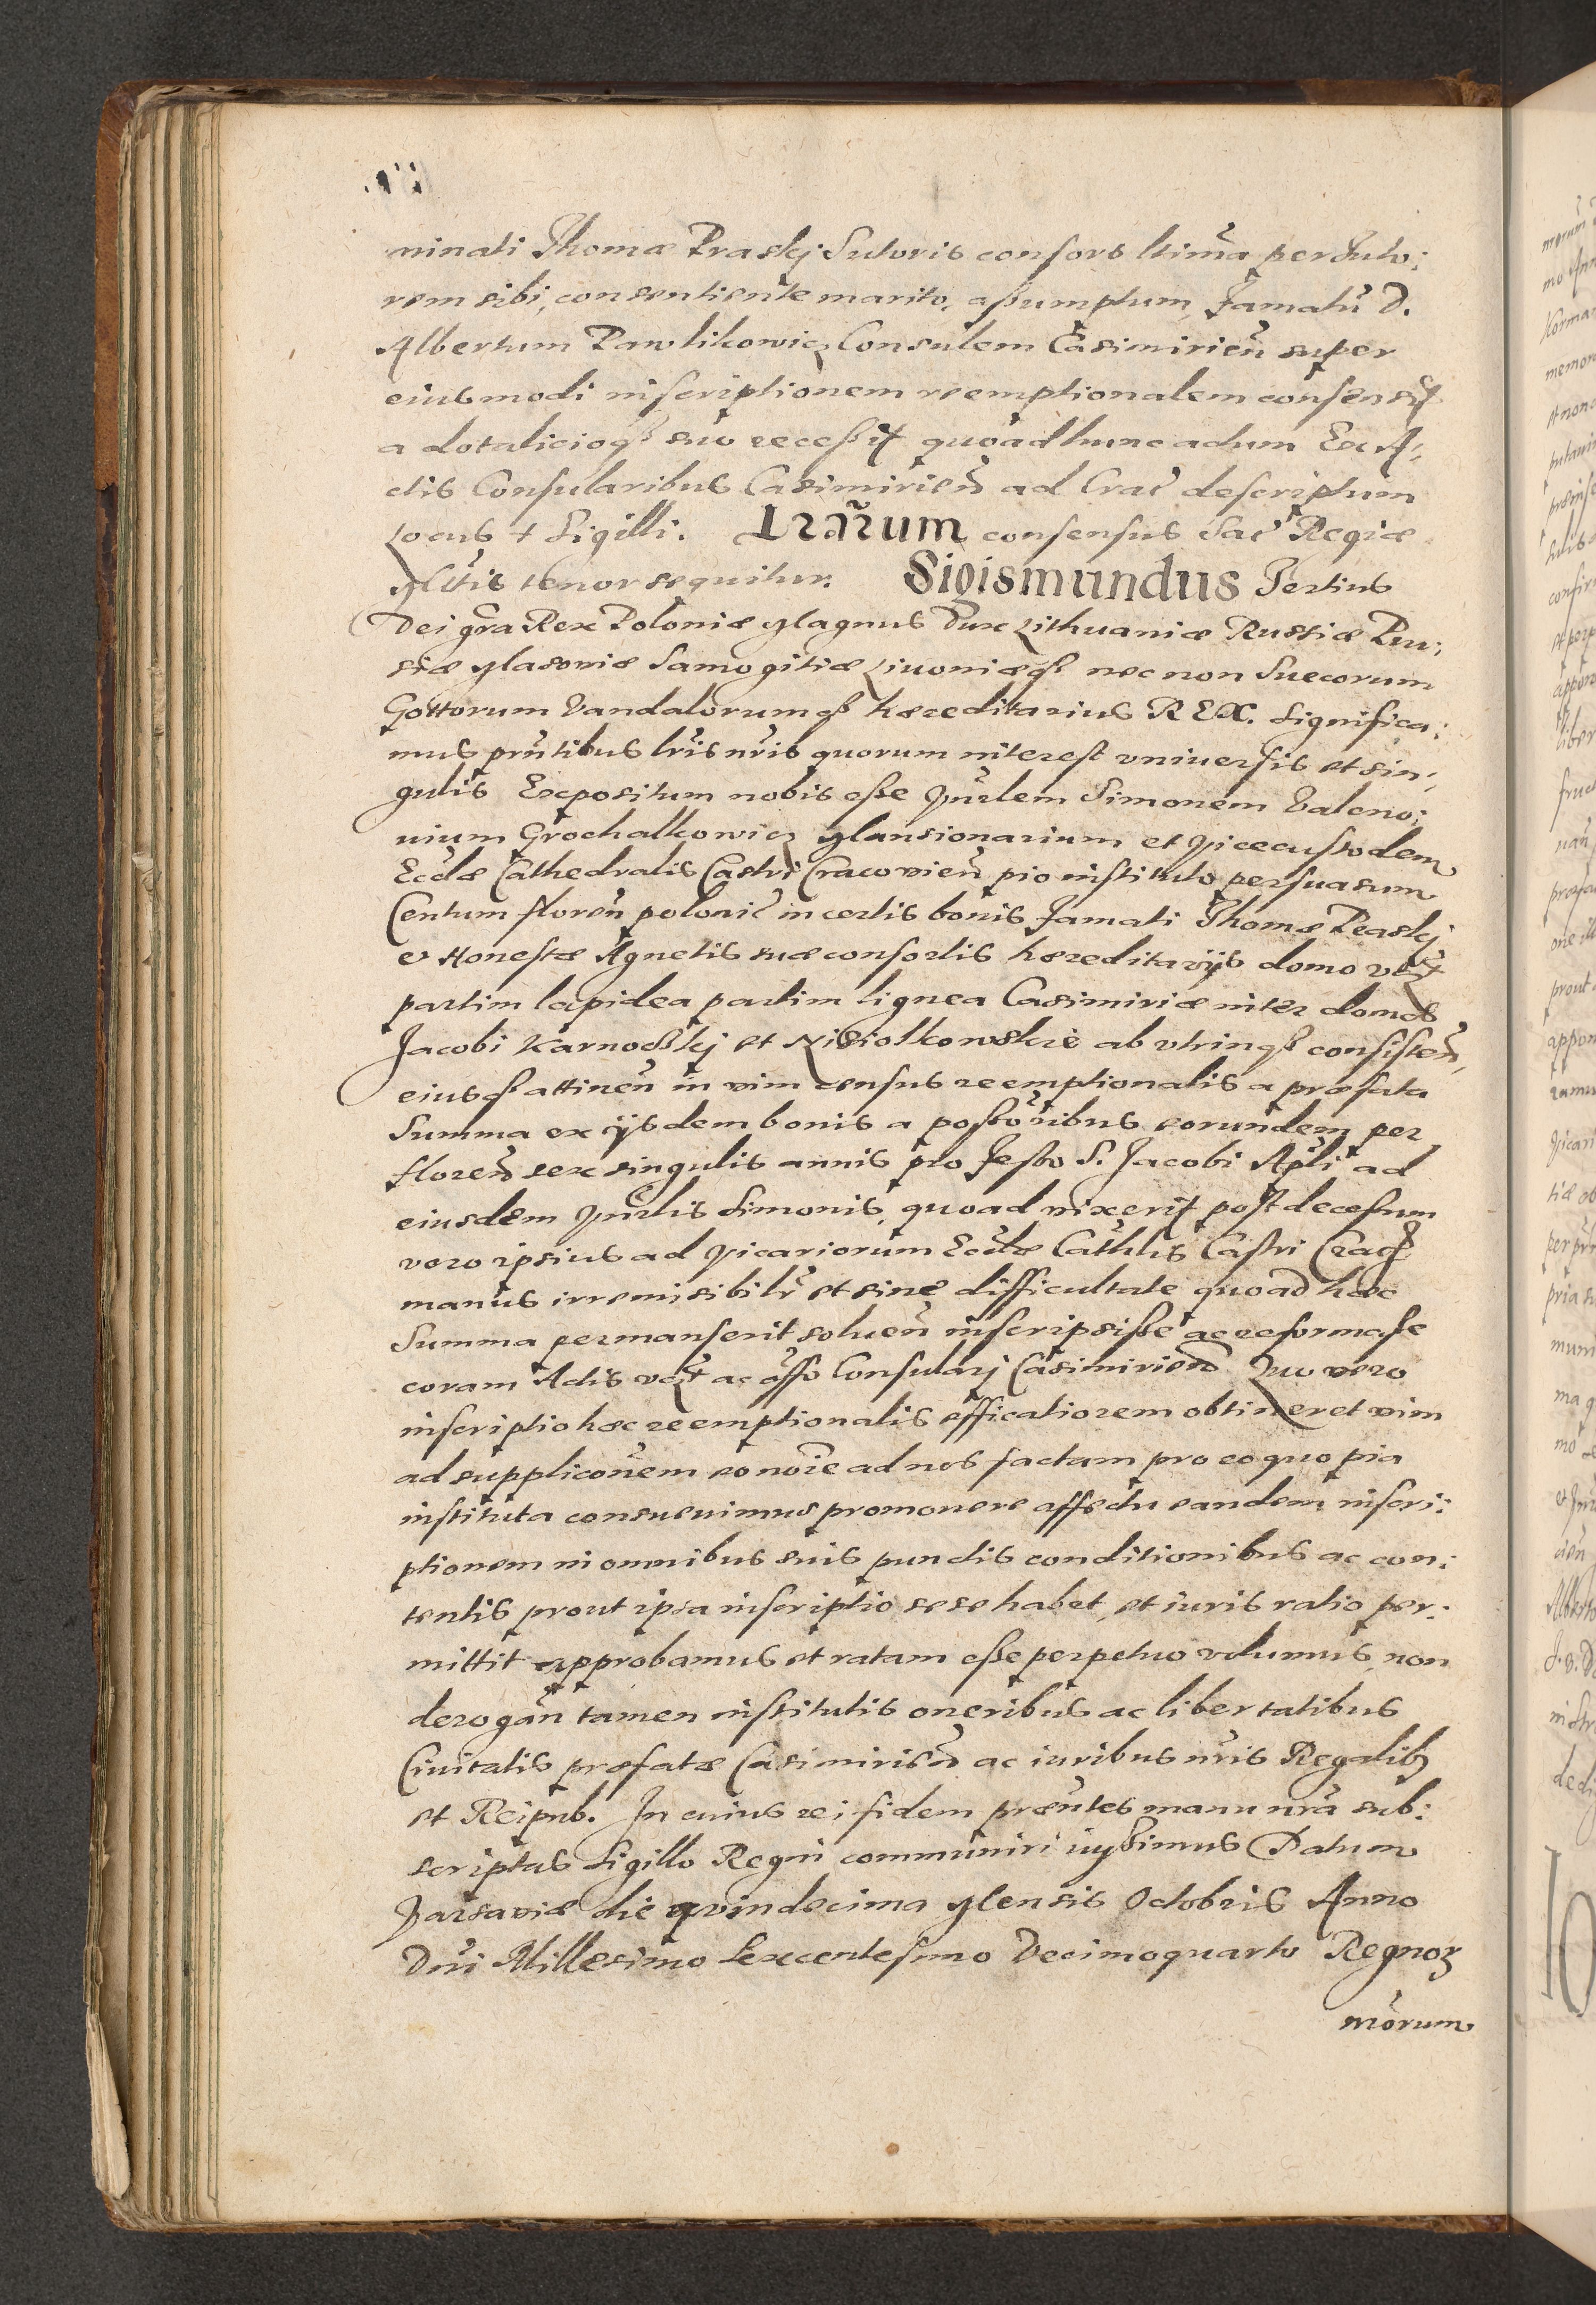 ninati Thomæ Praskj Sutoris consors ltima per Tuto:
rem sibi, consentiente marito, aßumptum, Famatũ D.
Albertum Pawlikowicz Consulem Casimirieñ super
eiusmodi inscriptionem reemptionalem consensit
a dotalicioqȝ suo recessit quoad hunc actum Ex A:
ctis Consularibus Casimirieñ ad Crac descriptum
Locus + Sigilli. Lrãrum consensus Sac Regiæ
Mttis tenor sequitur. Sigismundus Tertius
Dei gra Rex Poloniæ Magnus Dux Lithuaniæ Russiæ Pru:
siæ Masoviæ Samogitiæ Livoniæqȝ nec non Suecorum
Gottorum Vandalorumqȝ hæreditarius REX. Significa:
mus pñtibus lris nris quorum interest vniuersis et sin:
gulis Expositum nobis eße Vnrlem Simonem Valeno:
uium Grochalkowicz Mansionarium et Vicecustodem
Eccliæ Cathedralis Castri Cracovieñ pio instituto persuasum
Centum floreñ polonic in certis bonis Famati Thomæ Praskj
et Honestæ Agnetis suæ consortis hæreditarijs domo vczt
partim lapidea partim lignea Casimiriæ inter domos
Jacobi Karnoßkj et Nisiolkowskie ab vtrinqȝ consisteñ,
eiusqȝ attineñ in vim census reemptionalis a præfata
Summa ex ijsdem bonis a poßoribus eorundem per
floreñ sex singulis annis pro festo S. Jacobi Apli ad
eiusdem Vnrlis Simonis, quoad vixerit post decessum
vero ipsius ad Vicariorum Eccliæ Cathlis Castri Crac
manus irremisibilr et sine difficultate quoad hæc
Summa permanserit solueñ inscripsiße ac reformasse
coram Actis vczt ac offo Consularj Casimirieñ Quo vero
inscriptio hæc reemptionalis efficatiorem obtineret vim
ad supplicoñem eo noie ad nos factam pro eo quo pia
instituta consueuimus promouere affectu eandem inscri:
ptionem in omnibus suis punctis conditionibus ac con:
tentis prout ipsa inscriptio sese habet, et iuris ratio per:
mittit approbamus et ratam eße perpetuo volumus, non
derogañ tamen institutis oneribus ac libertatibus
Ciuitatis præfatæ Casimirieñ ac iuribus nris Regalibȝ
et Reipub. In cuius rei fidem præñtes manu nra sub:
scriptas Sigillo Regni communiri iußimus Datum
Varsaviæ die qvindecima Mensis Octobris Anno
Dni Millesimo Sexcentesimo Decimoquarto Regnoꝝ
nrorum